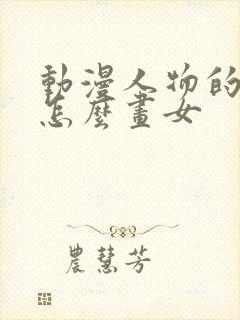 動漫人物的
怎麼畫女
農慧芳